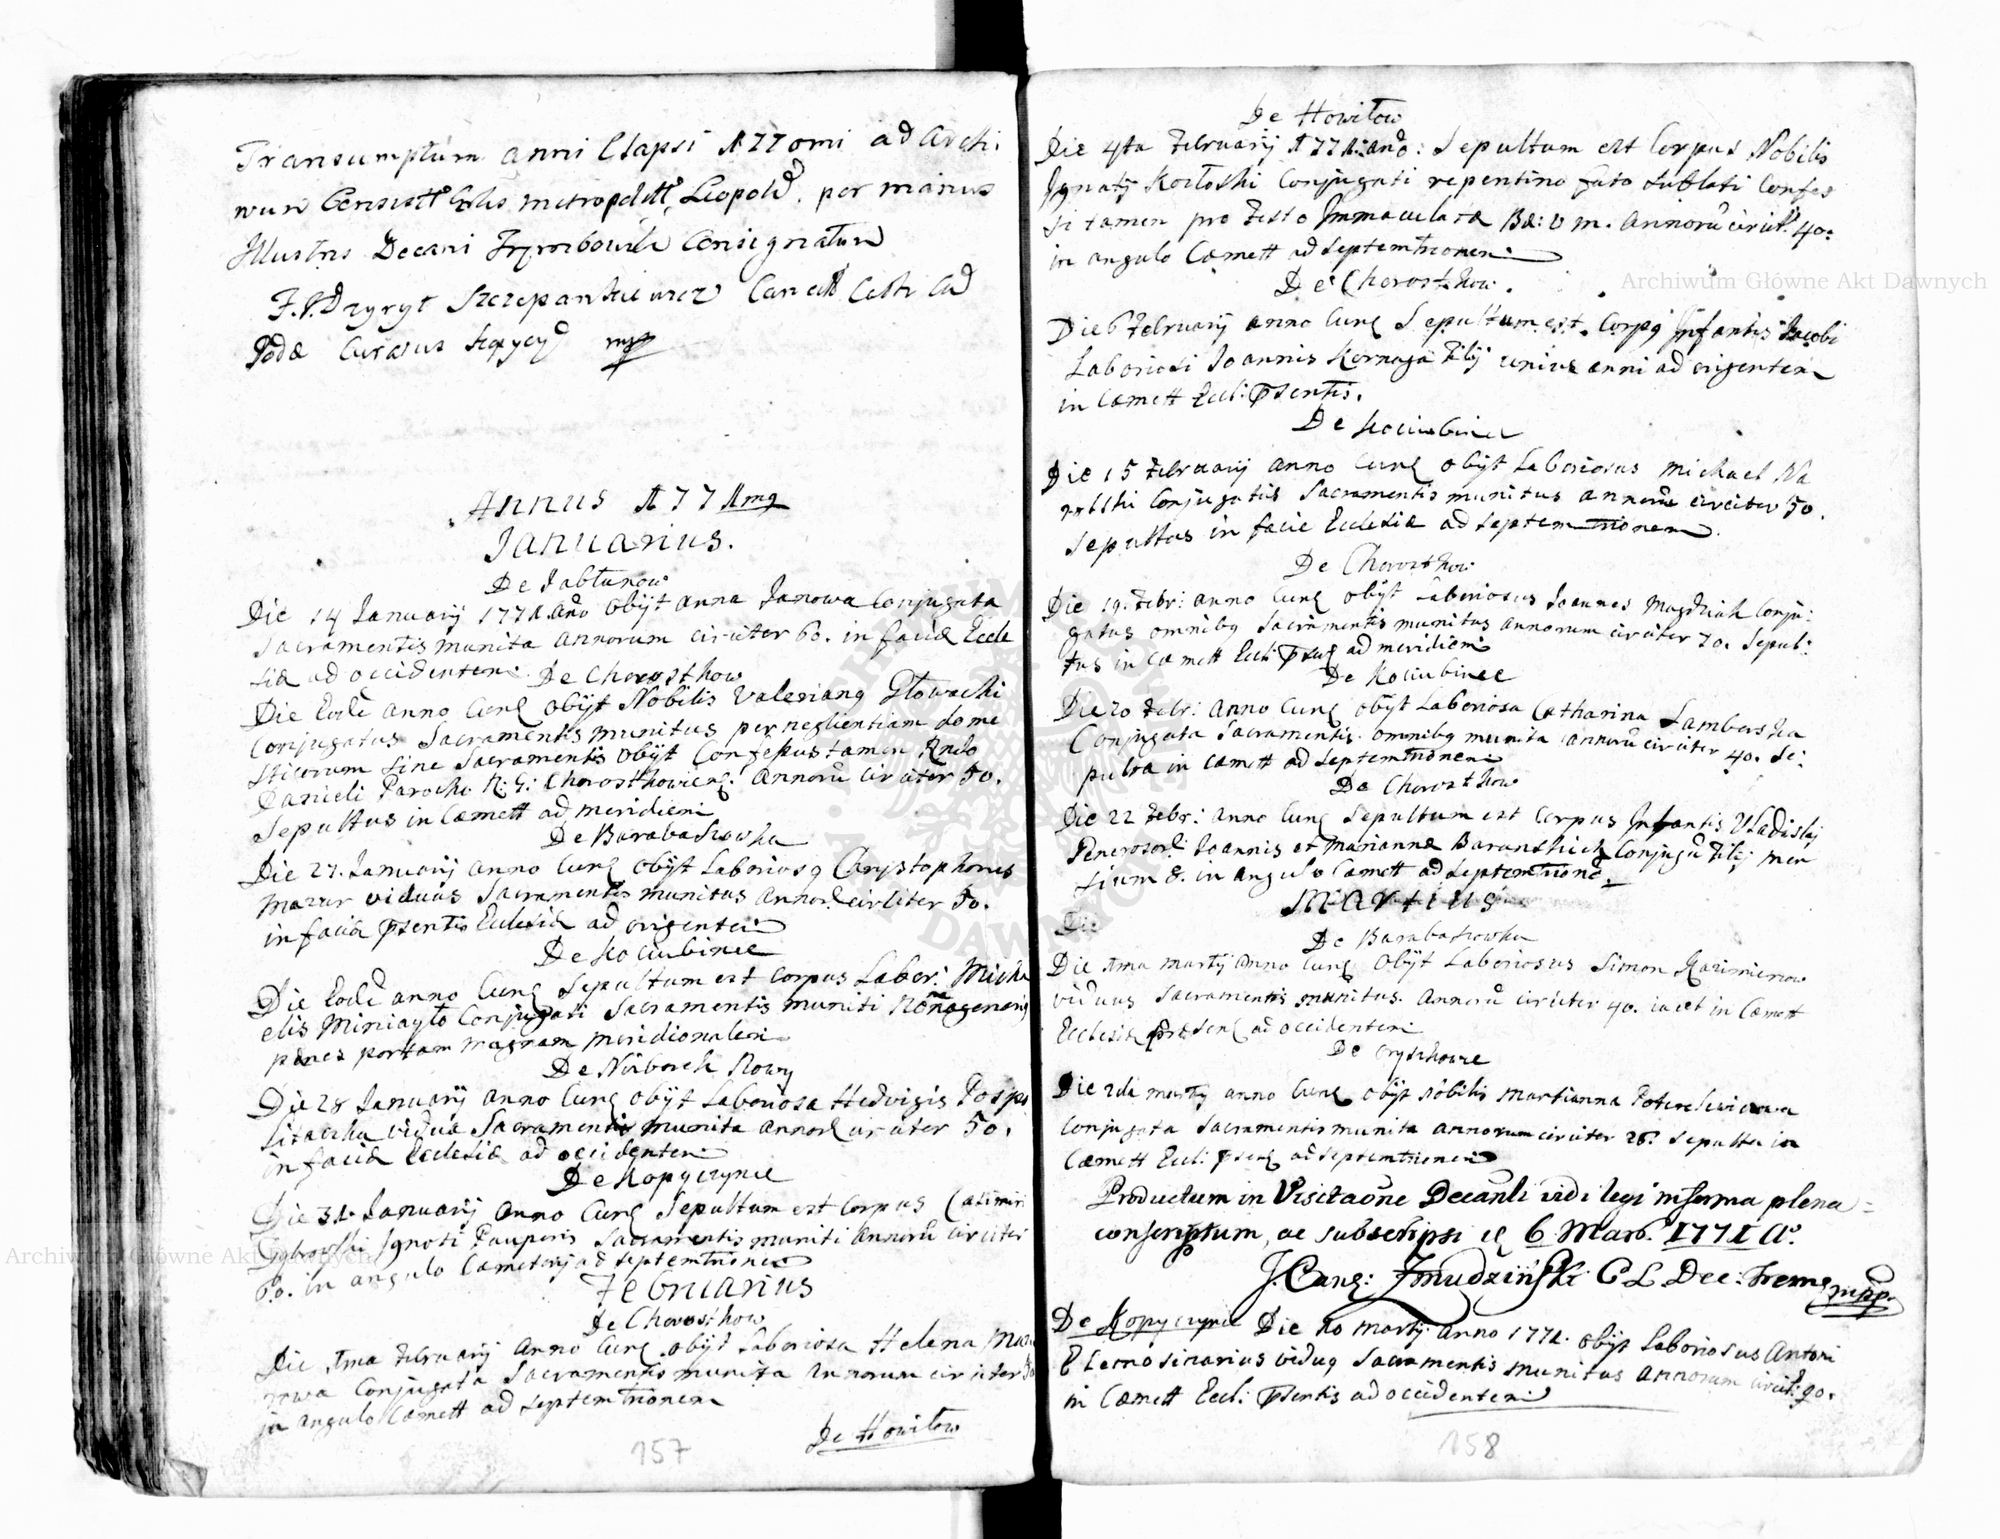 Transumptum anni Elapsi 1770mi ad Archi
vum per manus
Illustris Decani Trembowle Consignatum
Szczepankiewicz
Podae Curatus mpp
Annus 1771mq
Januarius.
De Jabłunow
Die 14 Januarij 1771 año obijt Anna Janowa Conjugata
Sacramentis munita annorum circiter 60. in facie Eccle
siæ ad occidentem. De Chorostkow
Die Eodē anno Curq obijt Nobilis Valerianq Głowacki
Conjugatus Sacramentis munitus per neglientiam dome
sticorum sine Sacramentis obijt Confessus tamen Rndo
Danieli Parocho R: G: Chorostkowienq: annorū circiter 50.
Sepultus in Cæmett ad meridiem
De Barabaszowka
Die 27. Januarij anno Curq obijt Laboriosq Chrystophorus
Mazur viduus Sacramentis munitus annor. circiter 50.
in facie Psentis Ecclesiæ ad origentem
De Kociubince
Die Eodē anno Curq Sepultum est corpus Labor: Micha
elis Miniayło Conjugati Sacramentis muniti Nonagenarij
penes portam magnam meridionalem
De Niżborek Nowy
Die 28 Januarij anno Curq obijt Laboriosa Hedvigis Pospi
sitaczka vidua Sacramentis munita annor circiter 50.
in facie Ecclesiæ ad occidentem
De Kopyczynce
Die 31. Januarij anno Curq Sepultum est corpus Casimiri
Ignoti Pauperis Sacramentis muniti annorū circiter
60. in angulo Cæmeterij ad septemtrionem
Februarius
De Chorostkow
Die 1ma Februarij anno Curq obijt Laboriosa Helena Mazu
rowa Conjugata Sacramentis munita annorum circiter
in angulo Cæmett ad septemtrionem
De Howiłow
157
De Howiłow
Die 4ta Februarij 1771 año: Sepultum est Corpus Nobilis
Ignatij Kozłoski Conjugati repentino fato sublati Confes
si tamen pro Festo Immaculatæ B: V M. annorū circit. 40.
in angulo Cæmett ad septemtrionem
De Chorostkow.
Die 6 Februarij anno Curq Sepultum est Corpq Infantis Jacobi
Laboriosi Joannis Kornaga Filij unius anni ad origentem
in Cæmett Eccl: Psentis.
De Kociubince
Die 15 Februarij anno Curq obijt Laboriosus Michael Na
Conjugatus Sacramentis munitus annorū circiter 50.
Sepultus in facie Ecclesiæ ad septemtrionem
De Chorostkow
Die 19. Febr: anno Curq obijt Laboriosus Joannes Magdziak Conju:
gatus omnibq Sacramentis munitus annorum circiter 70. Sepul:
tus in Cæmett Eccl: Psenq ad meridiem
De Kociubince
Die 20 Febr: anno Curq obijt Laboriosa Catharina Lamberska
Conjugata Sacramentis omnibq munita annorū circiter 40. Se:
pulta in Cæmett ad septemtrionem
De Chorostkow
Die 22 Febr: anno Curq Sepultum est Corpus Infantis Vladislaj
Generosor: Joannis et Mariannæ Baranskich Conjugū Filij men
sium 8. in angulo Cæmett ad septemtrionē.
Martius
Die
De Barabaszowka
Die 1ma Martij anno Curq obijt Laboriosus Simon Kazimierow
viduus Sacramentis munitus. annorū circiter 40. iacet in Cæmett
Ecclesiæ præsenq ad occidentem
De Oryszkowce
Die 2da Martij anno Curq obijt Nobilis Martianna
Conjugata Sacramentis munita annorum circiter 26. Sepulta in
Cæmett Eccl: psenq ad septemtrionem
Productum in Visitaōne Decanli vidi legi in forma plena
conscriptum, ac subscripsi q 6 Mart. 1771 A°.
J. Canq: Żmudziński C L Dec: Tremq mpp.
De Kopyczynce Die 10 Martij anno 1771. obijt Laboriosus Antoni
Elemosinarius viduq Sacramentis munitus annorum circit: 90.
in Cæmett Eccl: Psentis ad occidentem
158
Archiwum Główne Akt Dawnych
Archiwum Główne Akt Dawnych